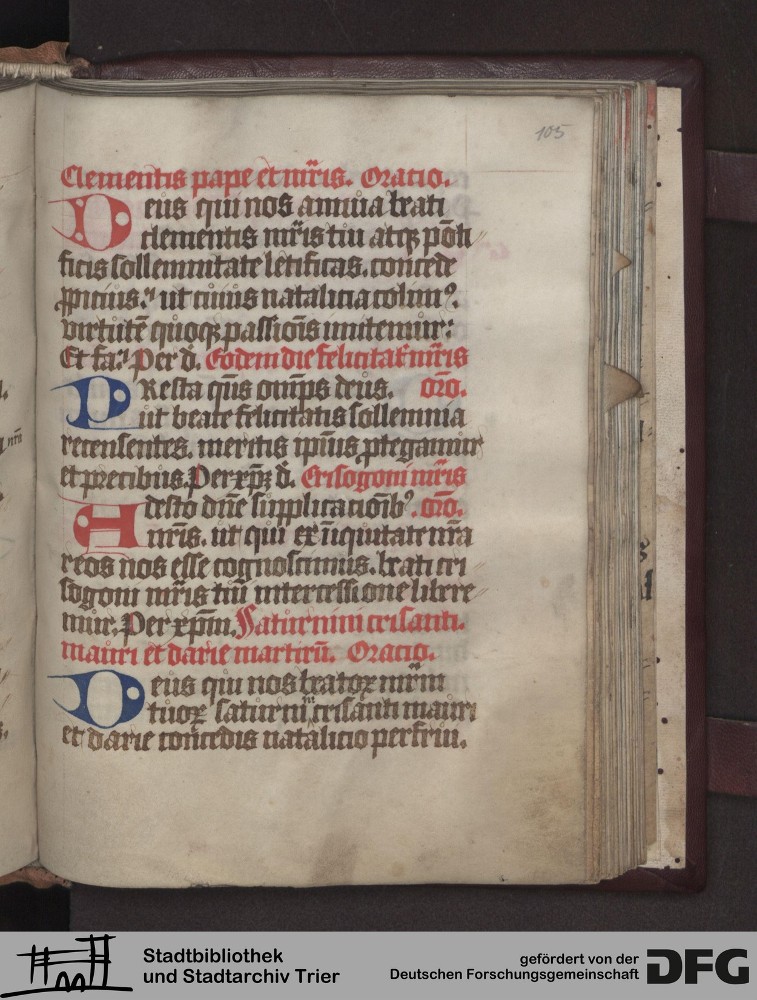 105
Clementis pape et mr̃is. Oratio.
Deus qui nos annua beati
clementis mr̃is tui atqꝫ põti
ficis sollemnitate letificas. concede
ꝓpicius. ut cuius natalicia colimꝰ.
virtutẽ quoqꝫ passiõis imitemur:
Et fa. Per d̃. Eodem die felicitat mr̃is
PResta q̃s om̃ps deus. or̃o.
ut beate felicitatis sollemnia
recensentes. meritis ip̃ius ꝓtegamur
et precibus. Per xp̃ꝫ d̃. Crisogoni mr̃is
Adesto dñe supplicatiõibꝰ. or̃o.
nr̃is. ut qui ex iniquitate nr̃a
reos nos esse cognoscimus. beati cri
sogoni mr̃is tui intercessione libere
mur. Per xp̃m. Saturnini crisanti.
mauri et darie martirũ. Oratio.
Deus qui nos beatoꝝ mr̃m
tuoꝝ saturnini crisanti mauri
et darie concedis natalicio perfrui.
Stadtbibliothek
und Stadtarchiv Trier
gefördert von der
Deutschen Forschungsgemeinschaft
DFG